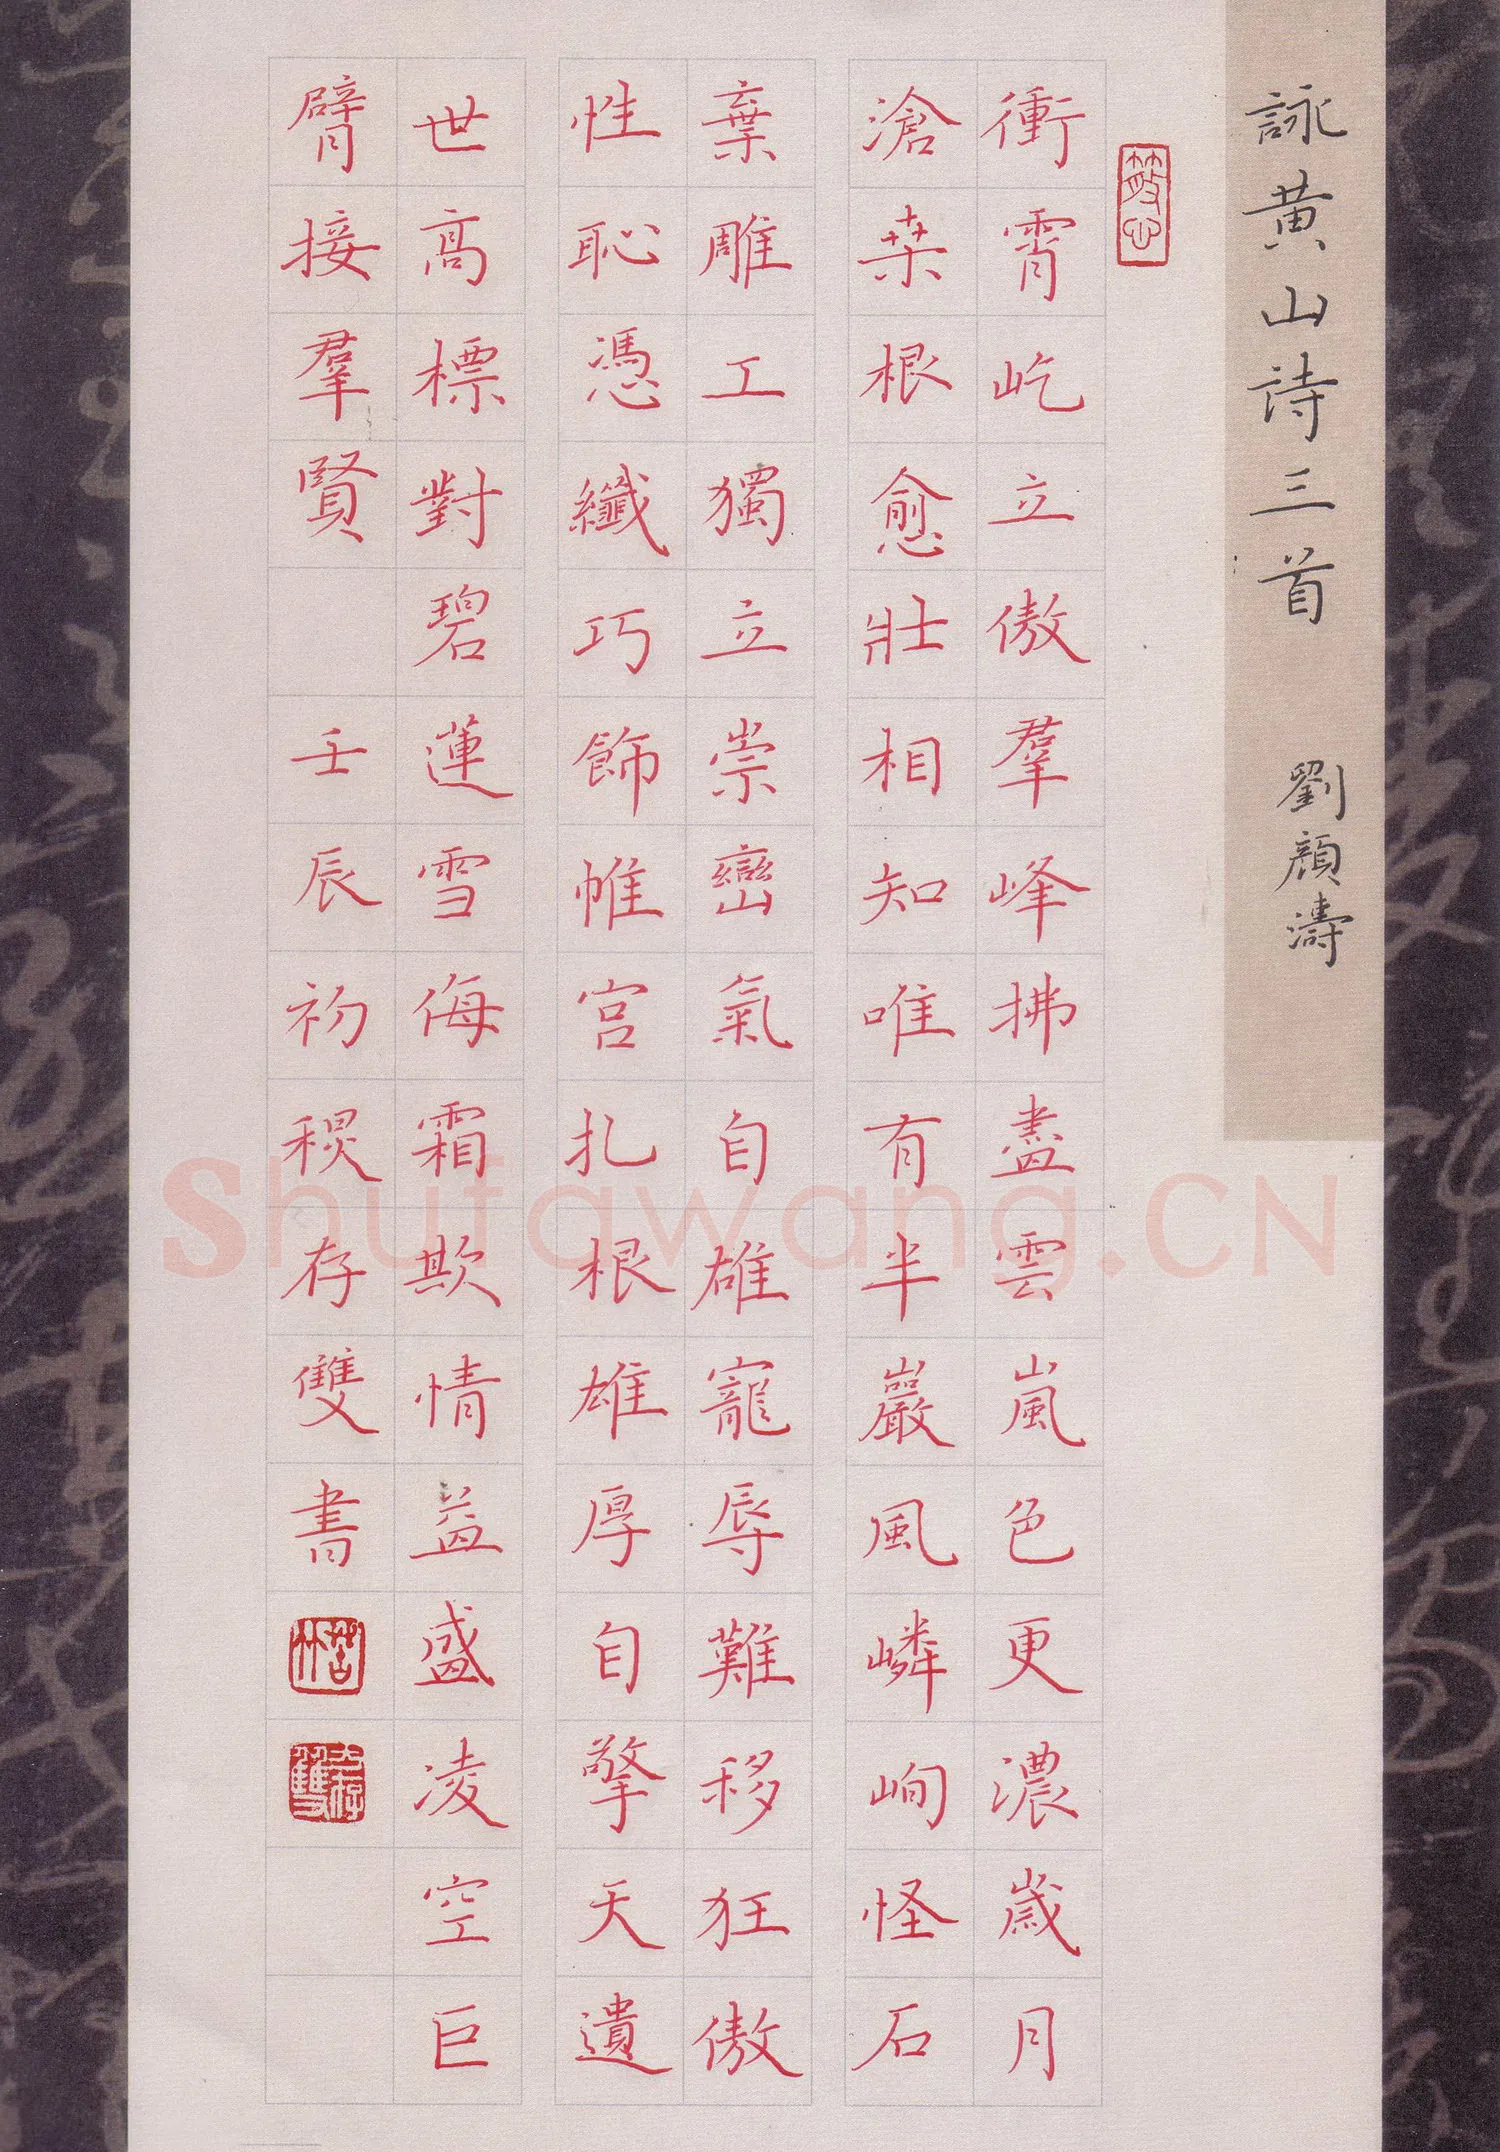 詠黄山詩三首 劉顔濤
衝霄屹立傲羣峰拂盡雲嵐色更濃歲月
滄桒根愈壯相知唯有半巖風嶙峋怪石
棄雕工獨立崇巒氣自雄寵辱難移狂傲
性恥慿纖巧飾帷宫扎根雄厚自擎天遺
世高標對碧蓮雪侮霜欺情益盛凌空巨
臂接羣賢 壬辰初稷存雙書
Shufawang.CN